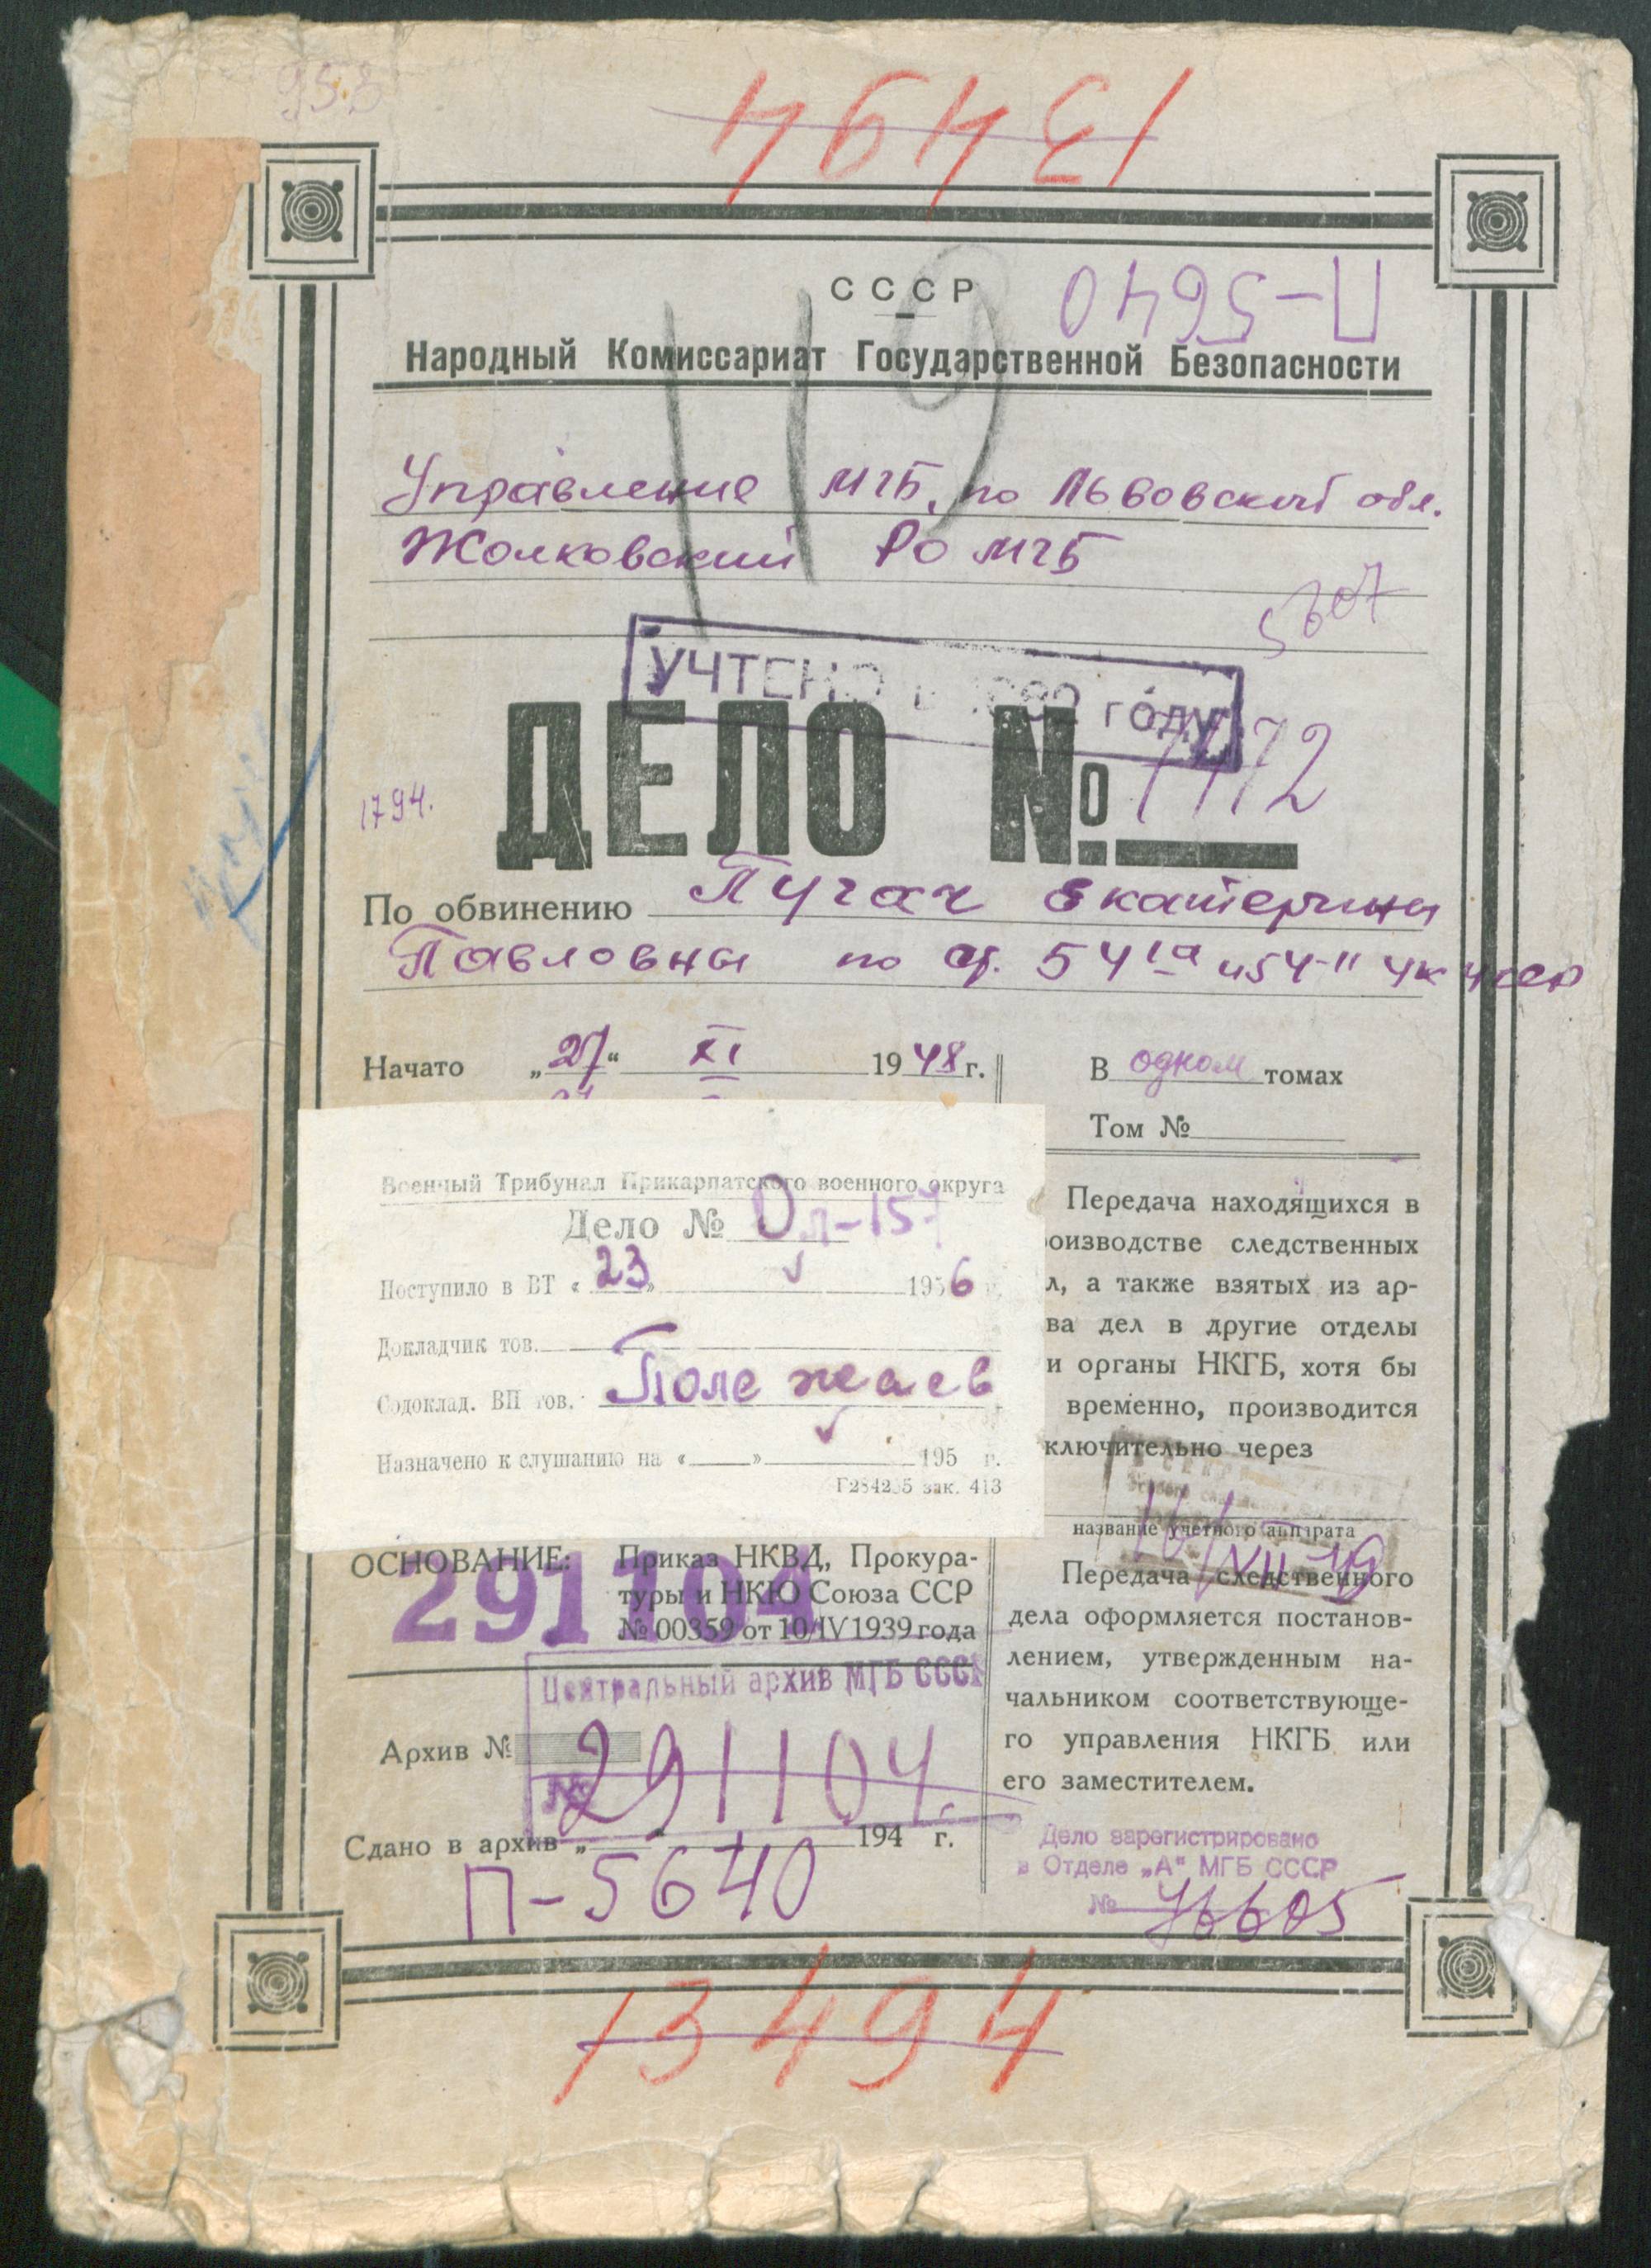 953
13494
СССР
П-5640
Народный Комиссариат Государственной Безопасности
110
Управление МГБ, по Львовской обл.
Жолковский РО МГБ
5607
УЧТЕНО В году
ДЕЛО №
1794.
По обвинению Пугач Екатерины
Павловны по ст. 54-1а и 54-11 УК УССР
Начато „27“ XI 1948 г.
В одном томах
Том №
Военный Трибунал Прикарпатского военного округа
Дело № Оп-157
Поступило в ВТ «23» 1956 г.
Докладчик тов.
Содоклад. ВП тов. Полежаев
Назначено к слушанию на « » 195 г.
Г284255 зак. 413
Передача находящихся в
оизводстве следственных
л, а также взятых из ар-
ва дел в другие отделы
и органы НКГБ, хотя бы
временно, производится
ключительно через
название учетного аппарата
Передача следственного
дела оформляется постанов-
лением, утвержденным на-
чальником соответствующе-
го управления НКГБ или
его заместителем.
ОСНОВАНИЕ: Приказ НКВД, Прокура-
туры и НКЮ Союза ССР
№ 00359 от 10/IV 1939 года
291104
Центральный архив МГБ СССР
Архив №
№ 291104.
Сдано в архив „ “ 194 г.
П-5640
Дело зарегистрировано
в Отделе „А“ МГБ СССР
№ 76605
13494